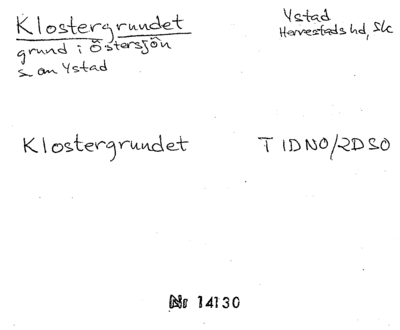 Klostergrundet
grund i Östersjön
s om Ystad
Ystad
Herrestads hd, Sk
Klostergrundet T 1DNO/2DSO
Nr 14130